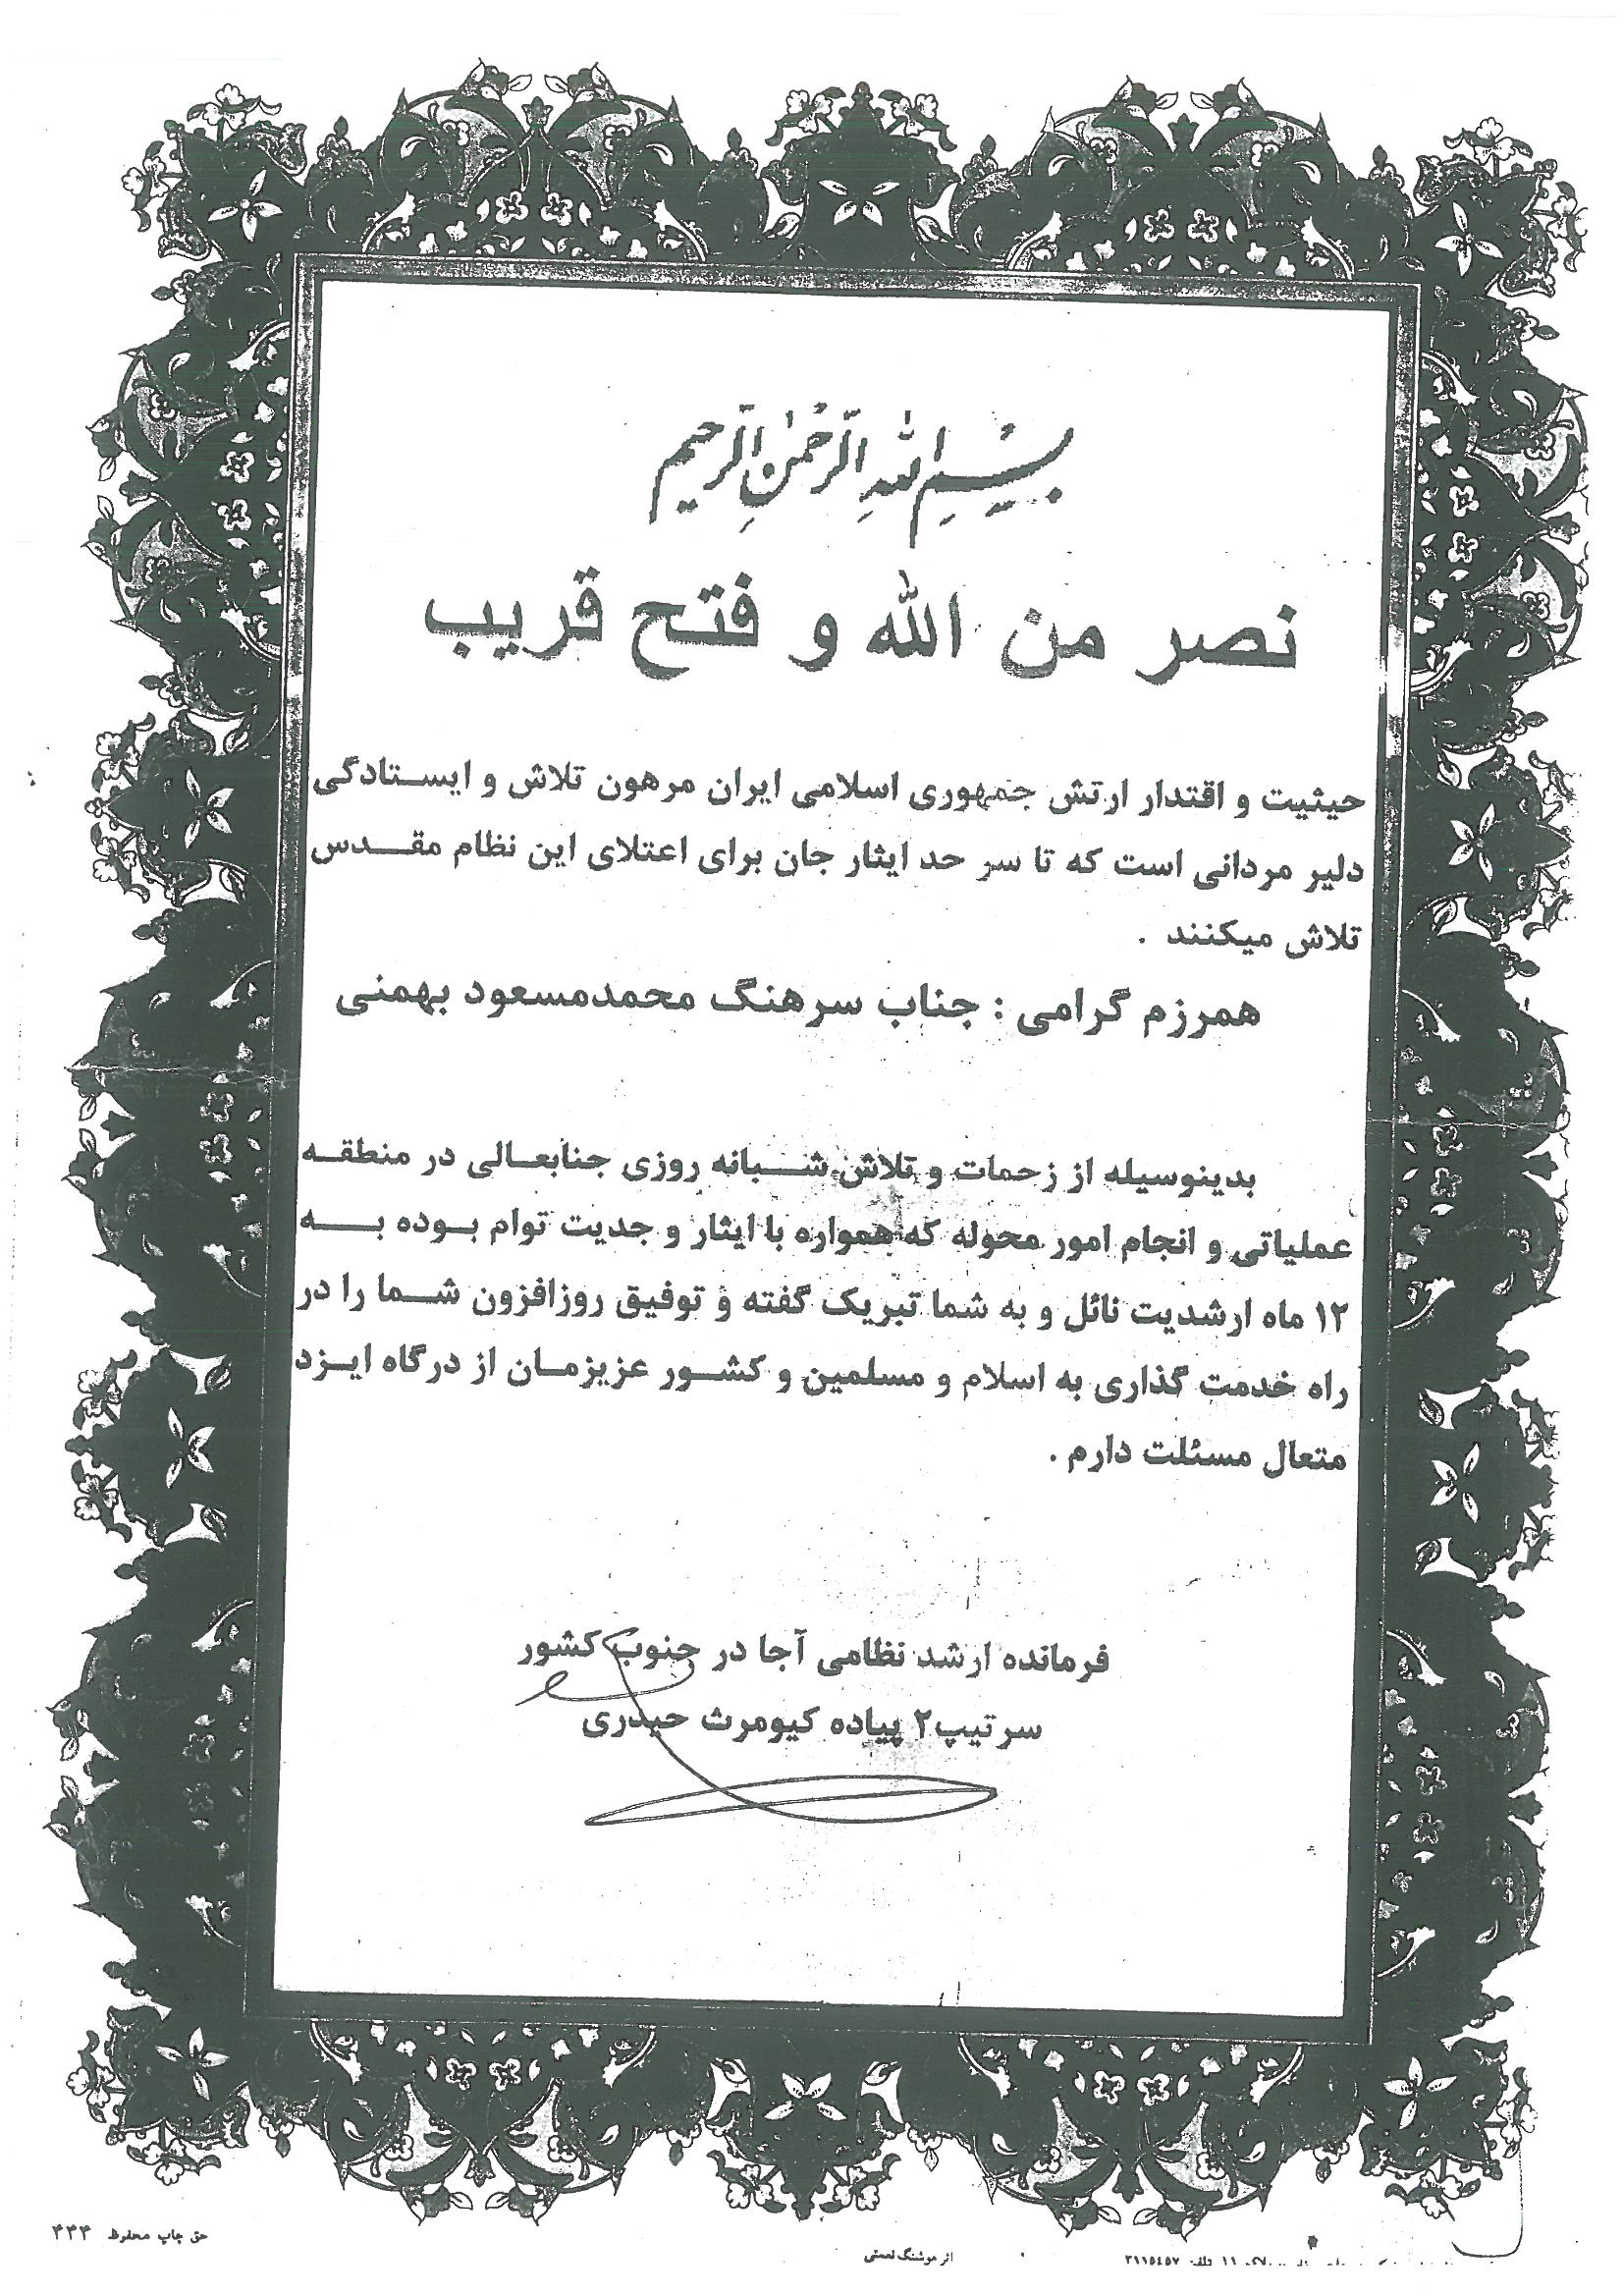 بِسْمِ اللهِ الرَّحْمٰنِ الرَّحيم
نصر من الله و فتح قريب
حیثیت و اقتدار ارتش جمهوری اسلامی ایران مرهون تلاش و ایستادگی
دلیر مردانی است که تا سر حد ایثار جان برای اعتلای این نظام مقدس
تلاش میکنند .
همرزم گرامی : جناب سرهنگ محمدمسعود بهمنی
بدینوسیله از زحمات و تلاش شبانه روزی جنابعالی در منطقه
عملیاتی و انجام امور محوله که همواره با ایثار و جدیت توام بوده به
۱۲ ماه ارشدیت نائل و به شما تبریک گفته و توفیق روزافزون شما را در
راه خدمت گذاری به اسلام و مسلمین و کشور عزیزمان از درگاه ایزد
متعال مسئلت دارم .
فرمانده ارشد نظامی آجا در جنوب کشور
سرتیپ۲ پیاده کیومرث حیدری
حق چاپ محفوظ ۴۴۴
اثر هوشنگ نعمتی
۱۱ تلفن ۳۱۱۵٤۵۷